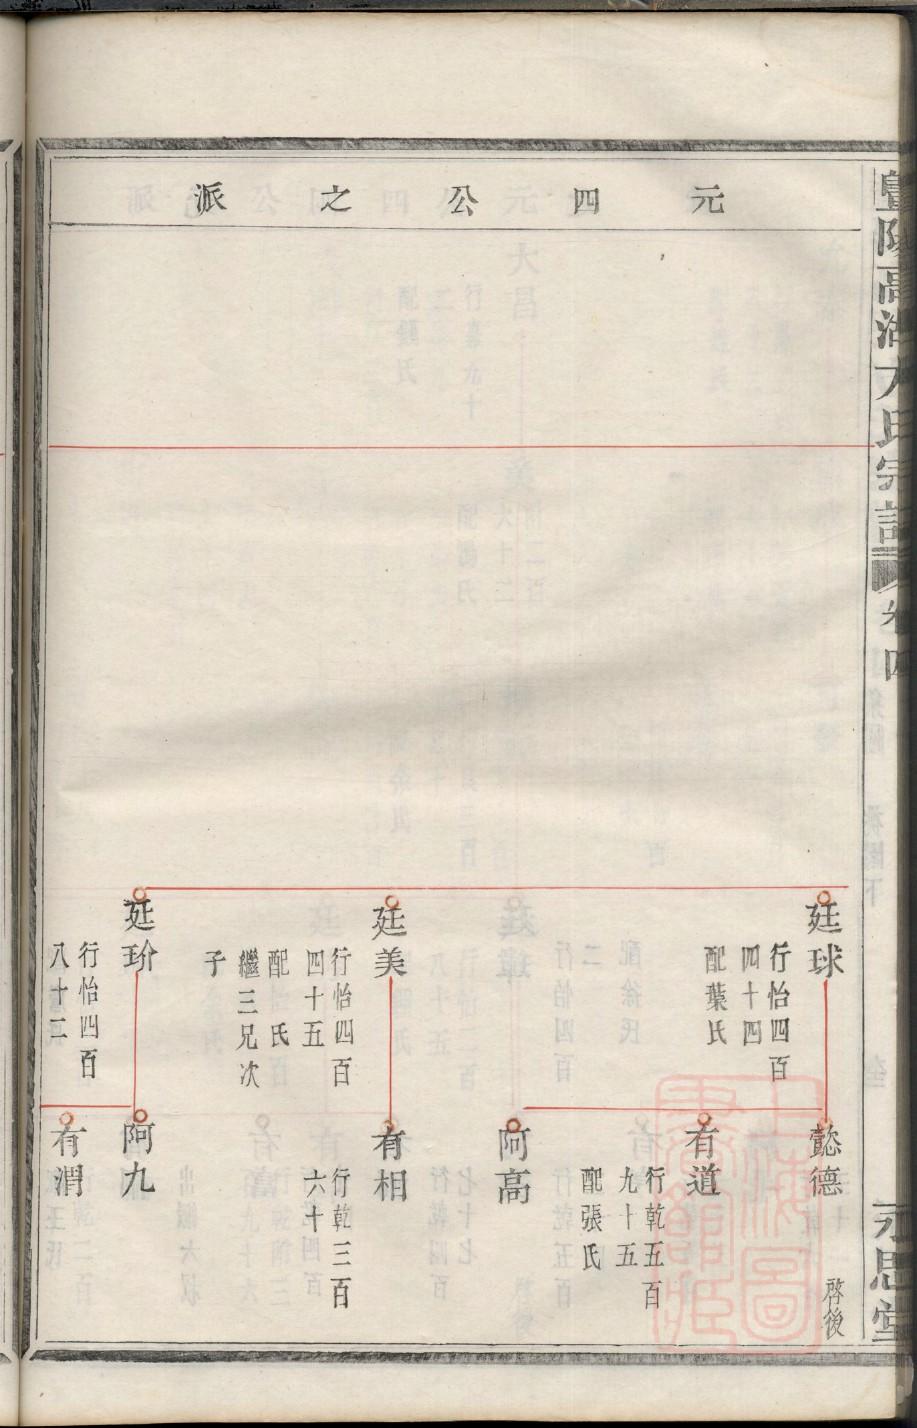 元四公之派
高湖方氏宗譜
卷四
永思堂
廷球
行怡四百
四十四
配葉氏
廷美
行怡四百
四十五
配氏
繼三兄次
子
廷玠
行怡四百
八十二
懿德
啓後
有道
行乾五百
九十五
配張氏
阿高
有相
行乾三百
六十
阿九
有潤